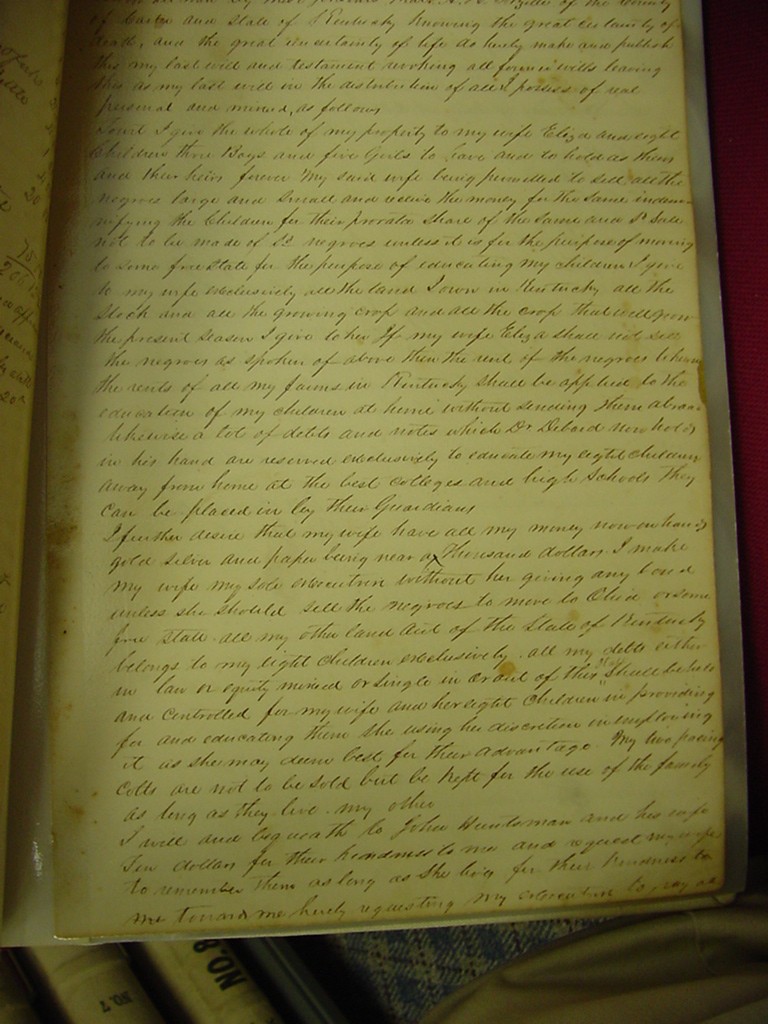 of the County
of Carter and state of Kentucky Knowing the great certainty of
death, and the great uncertainty of life do herby make and publish
this my last will and testament revoking all former wills leaving
this as my last will in the distribution of all I possess of real
personal and mixed, as follows
I give the whole of my property to my wife Eliza and eight
Children three Boys and five Girls to have and to hold as them
and their heirs forever My said wife being permitted to sell all the
negroes large and small and receive the money for the same indem-
nifying the Children for their prorata share of the same and Sd Sale
not to be made of Sd negroes unless it is for the purpose of moving
to some free State for the purpose of educating my children I give
to my wife exclusively all the land I own in Kentucky all the
Stock and all the growing crop and all the crop that will grow
the present season I give to her If my wife Eliza shall not sell
the negroes as spoken of above then the rent of the negroes
the rents of all my farms in Kentucky shall be applied to the
education of my children at home without sending them abroad
likewise a lot of debts and notes which Dr Debord now holds
in his hand are reserved exclusively to educate my eight children
away from home at the best colleges and high Schools they
can be placed in by their Guardians
I further desire that my wife have all my money now on hand
gold silver and paper being near a Thousand dollars I make
my wife my sole executrix without her giving any bond
unless she should sell the negroes to move to Ohio or some
free state. all my other land out of the State of Kentucky
belongs to my eight children exclusively. all my debts either
in law or equity mixed or single in or out of this State shall be held
and controlled for my wife and her eight children in providing
for and educating them she using her discretion in employing
it as she may deem best for their advantage. My two pacing
colts are not to be sold but be kept for the use of the family
as long as they live. my other
I will and bequeath to John Huntsman and his wife
Ten dollars for their kindness to me and request my wife
to remember them as long as she lives for their kindness to
me toward me herby requesting my executrix to pay
NO. 8
NO. 7
75
20